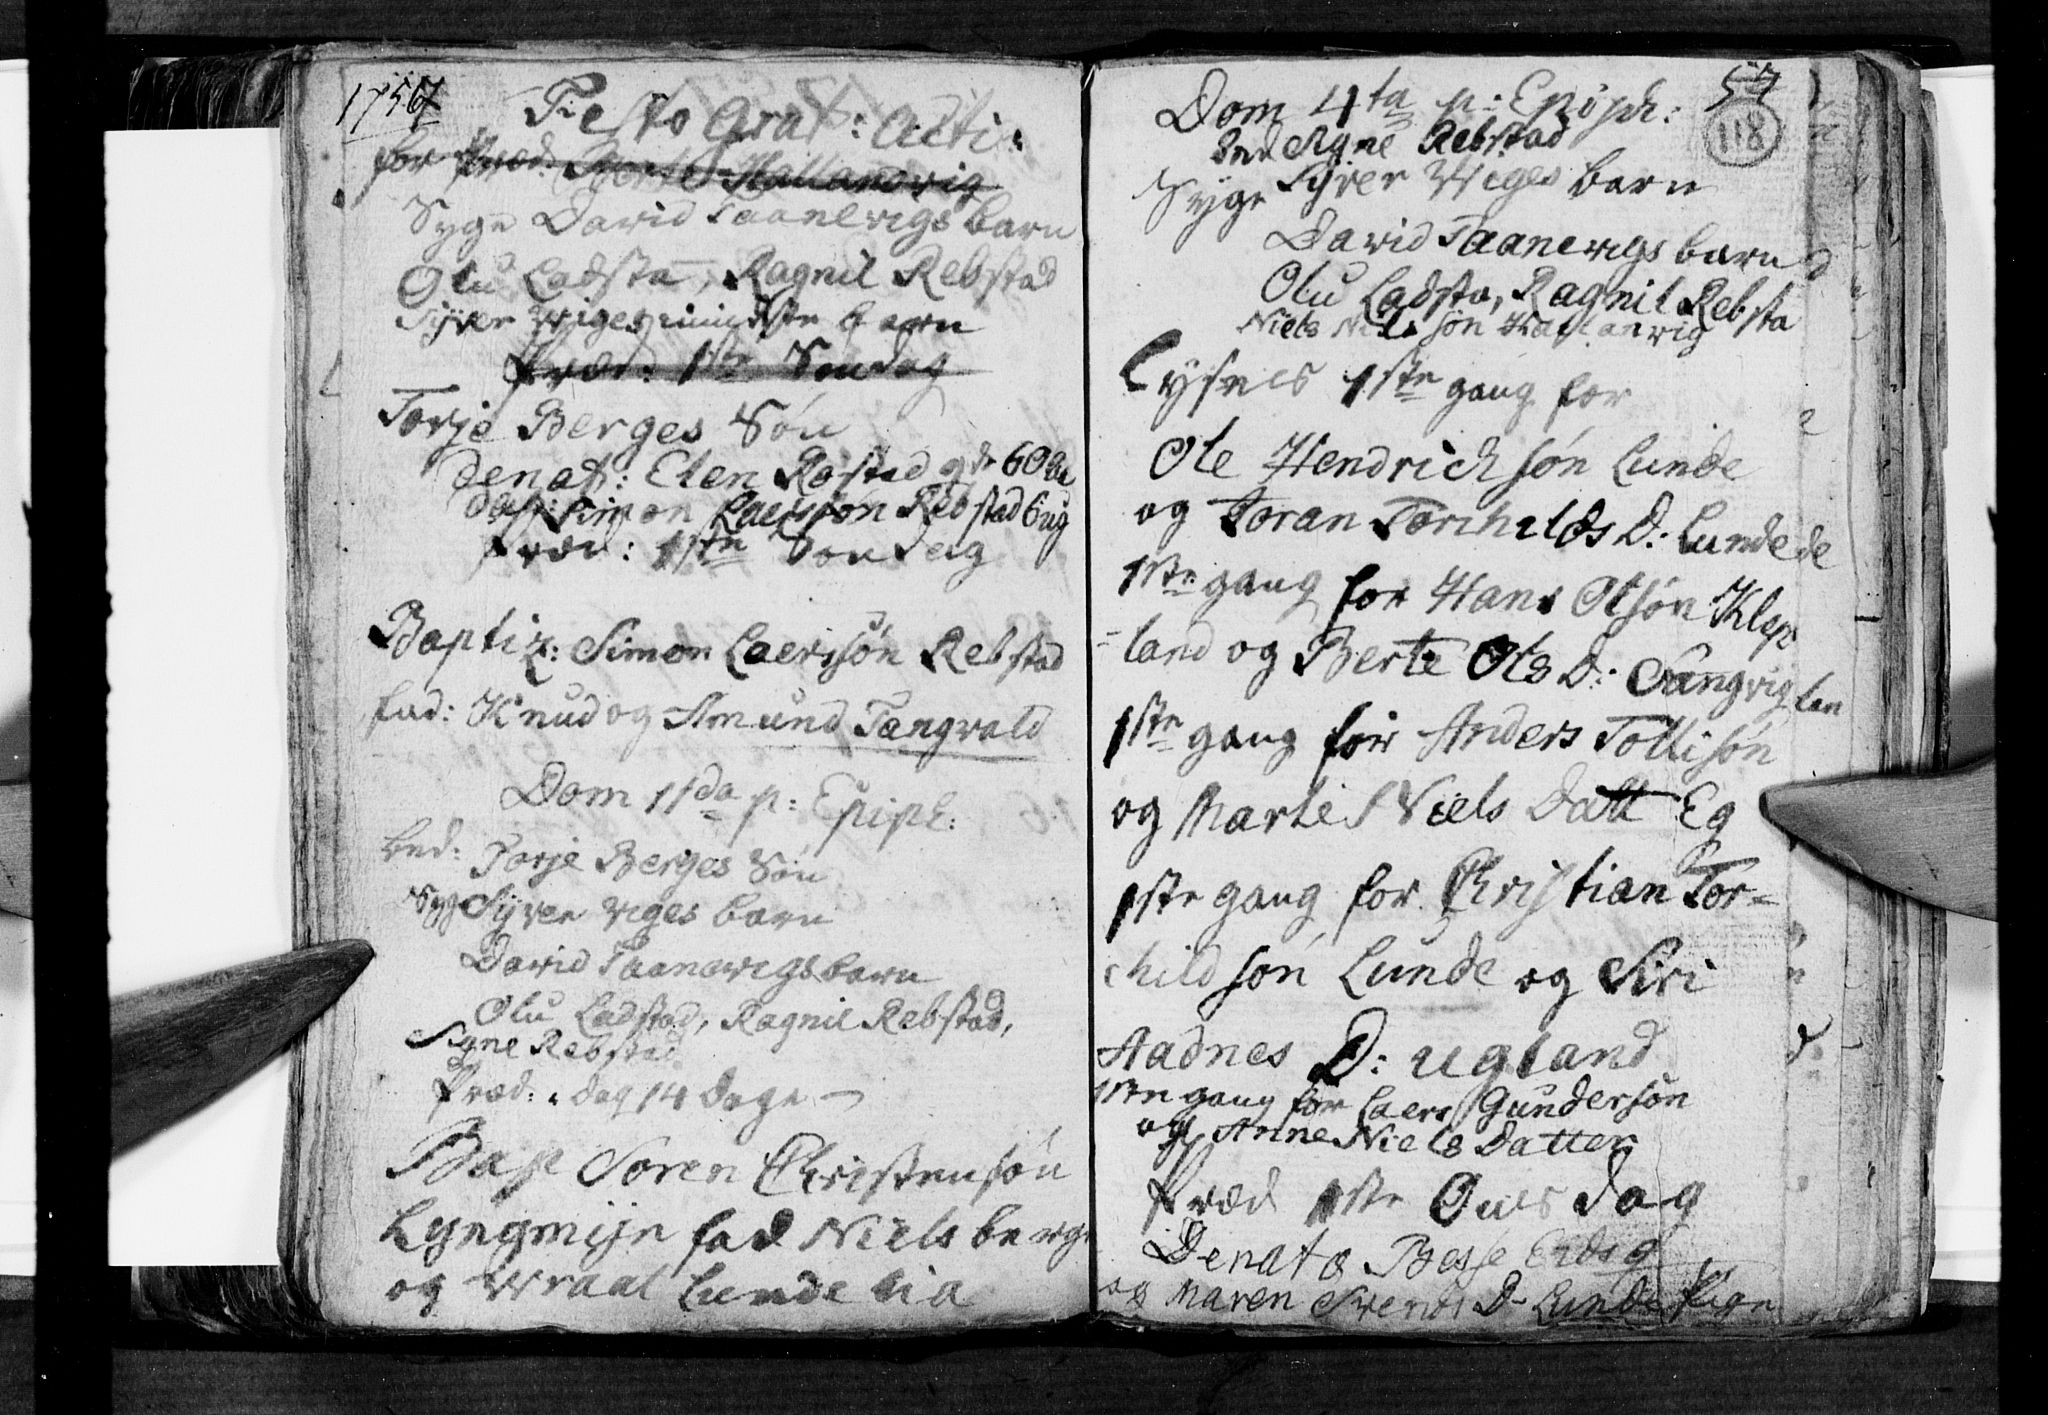 1757
Festo Grat: Acti:
for Præd:
Syge David Taanevigs barn
Olu Ladsta, Ragnil Rebstad
Syver Wiges mindste barn
Præd: 1ste Søndag
Torje Berges Søn
denat: Elen Røstad
Simon Laersøn Rebstad 6 ug
Præd: 1ste Søndag
Baptiz: Simon Laersøn Rebstad
fad: Knud og Amund Tangvald
Dom 11da p: Epiph:
bed: Torje Berges Søn
Syg Syver Viges barn
David Taanevigs barn
Olu Ladstad, Ragnil Rebstad,
Signe Rebstad
Præd: dag 14 dage
Bap Soren Christensøn
Lyngmyr fad Niels berge
og Wraal Lunde lia
57
118
Dom 4ta p: Epiph:
Signe Rebstad
Syge Syver Wiges barn
David Taanevigs barn
Olu Ladsta, Ragnil Rebsta
Niels Nilssøn Hallanvig
Lysnes 1ste gang for
Ole Hendrichsøn Lunde
og Toran Torchilds D: Lunde
1ste gang for Hans Olsøn Klep
land og Berte Ols D: Sangvig
1ste gang for Anders Tollisøn
og Marte Niels Datt Eg
1ste gang for Christian Tor-
childsøn Lunde og Siri
Aadnes D: Ugland
1ste gang for Laers Gundersøn
og Anne Niels Datter
Præd 1ste Onsdag
Denata Besse
og Maren Svends D- Lunde